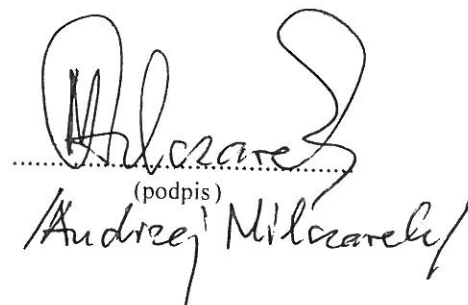 Milczarek
(podpis)
/Andrzej Milczarek/